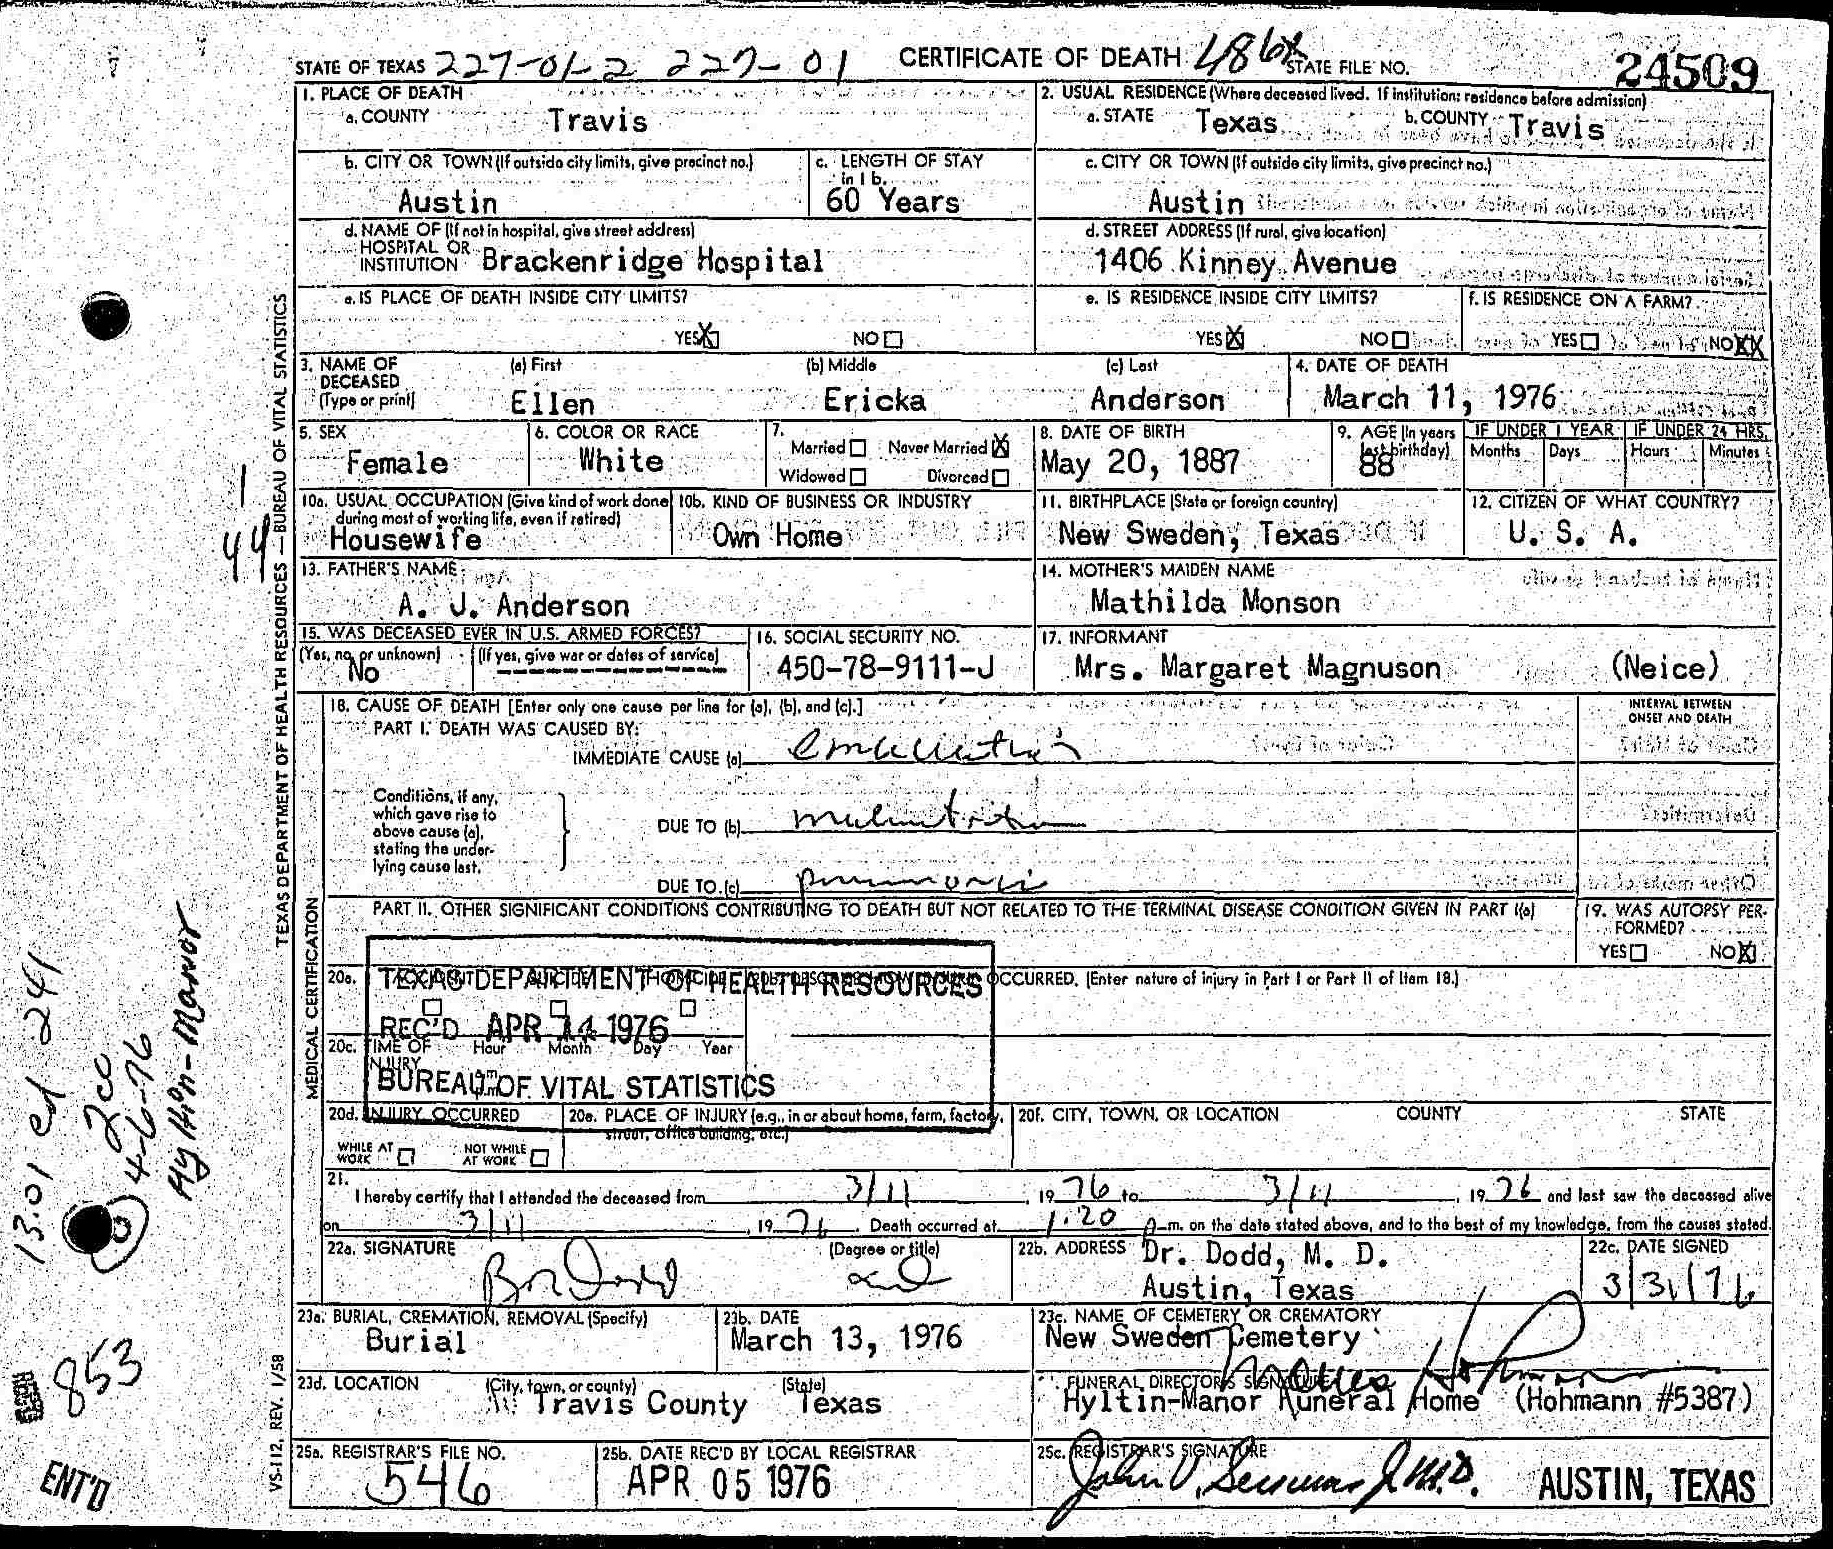 STATE OF TEXAS 227-01-2 227-01 CERTIFICATE OF DEATH 486x STATE FILE NO. 24509
1. PLACE OF DEATH
a. COUNTY Travis
2. USUAL RESIDENCE (Where deceased lived. If institution: residence before admission)
a. STATE Texas b. COUNTY Travis
b. CITY OR TOWN (If outside city limits, give precinct no.) Austin
c. LENGTH OF STAY in 1 b. 60 Years
c. CITY OR TOWN (If outside city limits, give precinct no.) Austin
d. NAME OF (If not in hospital, give street address)
HOSPITAL OR
INSTITUTION Brackenridge Hospital
d. STREET ADDRESS (If rural, give location)
1406 Kinney Avenue
e. IS PLACE OF DEATH INSIDE CITY LIMITS?
YES X NO
e. IS RESIDENCE INSIDE CITY LIMITS?
YES X NO
f. IS RESIDENCE ON A FARM?
YES NO XX
3. NAME OF DECEASED (Type or print)
(a) First Ellen
(b) Middle Ericka
(c) Last Anderson
4. DATE OF DEATH
March 11, 1976
5. SEX
Female
6. COLOR OR RACE
White
7. Married Never Married X
Widowed Divorced
8. DATE OF BIRTH
May 20, 1887
9. AGE (In years last birthday)
88
IF UNDER 1 YEAR
Months Days
IF UNDER 24 HRS.
Hours Minutes
10a. USUAL OCCUPATION (Give kind of work done during most of working life, even if retired)
Housewife
10b. KIND OF BUSINESS OR INDUSTRY
Own Home
11. BIRTHPLACE (State or foreign country)
New Sweden, Texas
12. CITIZEN OF WHAT COUNTRY?
U. S. A.
13. FATHER'S NAME
A. J. Anderson
14. MOTHER'S MAIDEN NAME
Mathilda Monson
15. WAS DECEASED EVER IN U.S. ARMED FORCES?
(Yes, no, or unknown) No
(If yes, give war or dates of service)
16. SOCIAL SECURITY NO.
450-78-9111-J
17. INFORMANT
Mrs. Margaret Magnuson (Neice)
18. CAUSE OF DEATH [Enter only one cause per line for (a), (b), and (c).]
INTERVAL BETWEEN ONSET AND DEATH
PART I. DEATH WAS CAUSED BY:
IMMEDIATE CAUSE (a) emaciation
Conditions, if any, which gave rise to above cause (a), stating the underlying cause last.
DUE TO (b) malnutrition
DUE TO (c) pneumonia
PART II. OTHER SIGNIFICANT CONDITIONS CONTRIBUTING TO DEATH BUT NOT RELATED TO THE TERMINAL DISEASE CONDITION GIVEN IN PART I(a)
19. WAS AUTOPSY PERFORMED?
YES NO X
20a. OCCURRED. (Enter nature of injury in Part I or Part II of Item 18.)
TEXAS DEPARTMENT OF HEALTH RESOURCES
REC'D APR 14 1976
BUREAU OF VITAL STATISTICS
20c. TIME OF INJURY Hour Month Day Year
20d. INJURY OCCURRED
WHILE AT WORK NOT WHILE AT WORK
20e. PLACE OF INJURY (e.g., in or about home, farm, factory, street, office building, etc.)
20f. CITY, TOWN, OR LOCATION COUNTY STATE
21. I hereby certify that I attended the deceased from 3/11, 1976 to 3/11, 1976 and last saw the deceased alive
on 3/11, 1976. Death occurred at 1:20 p.m. on the date stated above, and to the best of my knowledge, from the causes stated.
22a. SIGNATURE (Degree or title)
22b. ADDRESS Dr. Dodd, M. D.
Austin, Texas
22c. DATE SIGNED
3/31/76
23a. BURIAL, CREMATION, REMOVAL (Specify)
Burial
23b. DATE
March 13, 1976
23c. NAME OF CEMETERY OR CREMATORY
New Sweden Cemetery
23d. LOCATION (City, town, or county) (State)
Travis County Texas
FUNERAL DIRECTOR'S SIGNATURE
Hyltin-Manor Funeral Home (Hohmann #5387)
25a. REGISTRAR'S FILE NO.
546
25b. DATE REC'D BY LOCAL REGISTRAR
APR 05 1976
25c. REGISTRAR'S SIGNATURE
AUSTIN, TEXAS
TEXAS DEPARTMENT OF HEALTH RESOURCES — BUREAU OF VITAL STATISTICS
MEDICAL CERTIFICATION
VS-112, REV. 1/58
1
44
13.01 ed 241
200
4-6-76
Hyltin-Manor
853
ENT'D